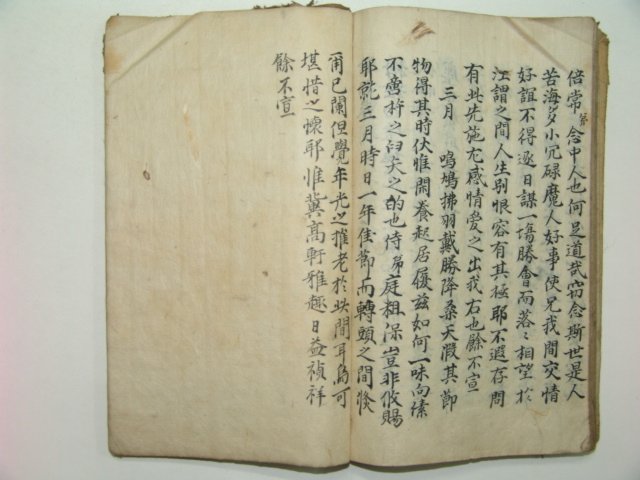 倍常弟念中人也何足道哉窃念斯世是人
苦海多小冗碌魔人好事使兄我間交情
好誼不得逐日謀一塲勝會而落〻相望於
江謂之間人生别恨容有其極耶不遐存問
有此先施尤感情愛之出我右也餘不宣
三月 鳴鳩拂羽戴勝降桑天假其節
物得其時伏惟閑養起居優玆如何一味向愫
不啻杵之臼矢之的也侍弟庭粗保豈非攸賜
耶就三月時日一年佳節而轉頭之間倐
甫已闌但覺年光之推老於此間耳烏可
堪惜之懷耶惟冀高軒雅趣日益禎祥
餘不宣